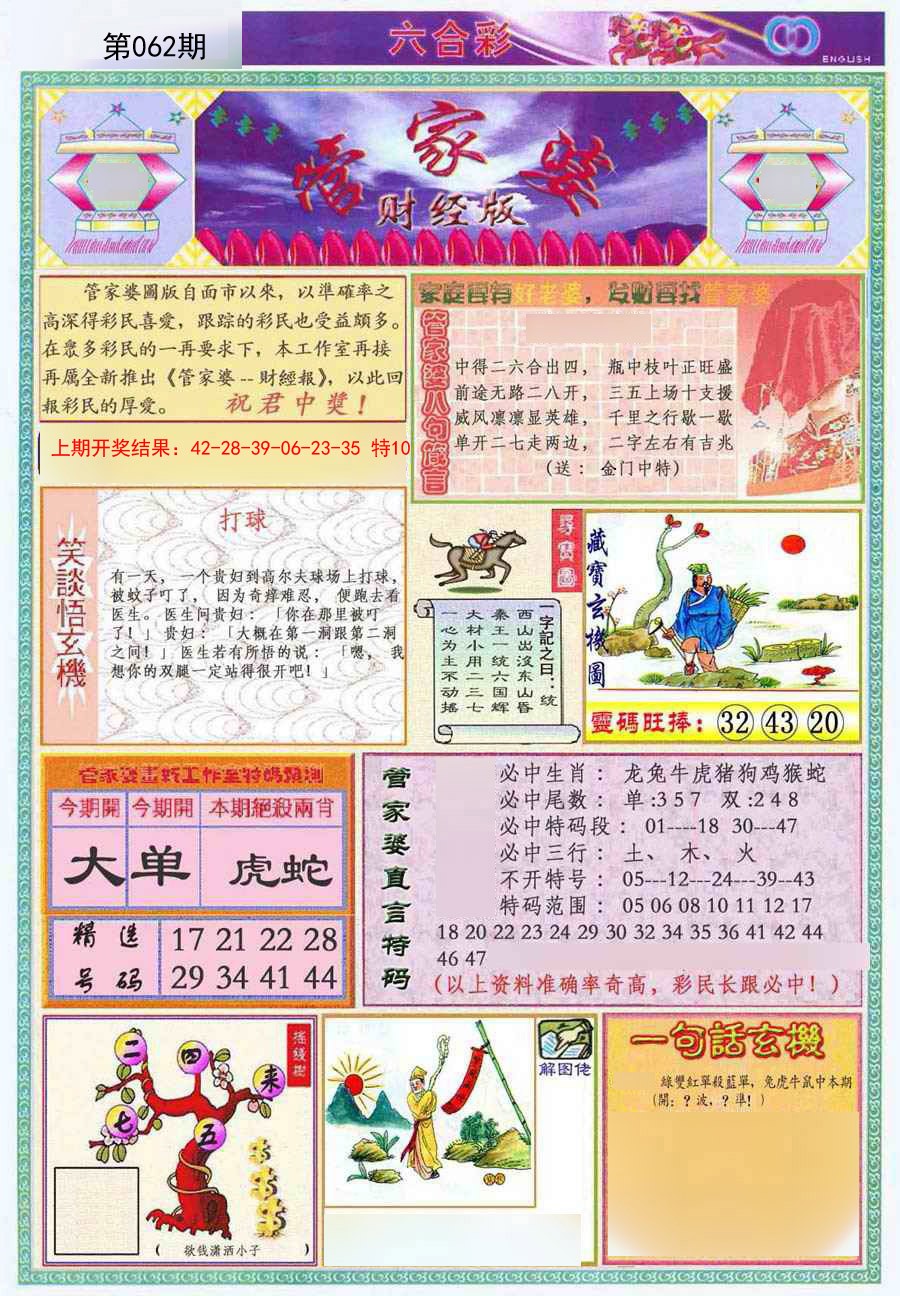 第062期
六合彩
ENGLISH
管家婆
财经版
管家婆圖版自面市以來，以準確率之
高深得彩民喜愛，跟踪的彩民也受益頗多。
在眾多彩民的一再要求下，本工作室再接
再厲全新推出《管家婆--財經報》，以此回
報彩民的厚愛。 祝君中獎！
上期开奖结果：42-28-39-06-23-35 特10
家庭要有好老婆，发财要找管家婆
管家婆八句箴言
中得二六合出四， 瓶中枝叶正旺盛
前途无路二八开， 三五上场十支援
威风凛凛显英雄， 千里之行歇一歇
单开二七走两边， 二字左右有吉兆
(送： 金门中特)
笑談悟玄機
打球
有一天，一个贵妇到高尔夫球场上打球，
被蚊子叮了，因为奇痒难忍，便跑去看
医生。医生问贵妇：「你在那里被叮
了！」贵妇：「大概在第一洞跟第二洞
之间！」医生若有所悟的说：「嗯，我
想你的双腿一定站得很开吧！」
尋寶圖
一字記之曰：统
西山出沒东山昏
秦王一统六国辉
大材小用二三七
一心为主不动摇
藏寶玄機圖
靈碼旺捧：32 43 20
管家婆畫班工作室特碼預測
今期開 今期開 本期絕殺兩肖
大 单 虎蛇
精选号码
17 21 22 28
29 34 41 44
管家婆直言特码
必中生肖： 龙兔牛虎猪狗鸡猴蛇
必中尾数： 单:3 5 7 双:2 4 8
必中特码段： 01----18 30---47
必中三行： 土、 木、 火
不开特号： 05---12---24---39--43
特码范围： 05 06 08 10 11 12 17
18 20 22 23 24 29 30 32 34 35 36 41 42 44
46 47
(以上资料准确率奇高，彩民长跟必中！)
摇錢樹
二
四
来
七
五
( 欲钱潇洒小子 )
解图佬
一句話玄機
綠雙紅單殺藍單，兔虎牛鼠中本期
(開：？波，？準！)